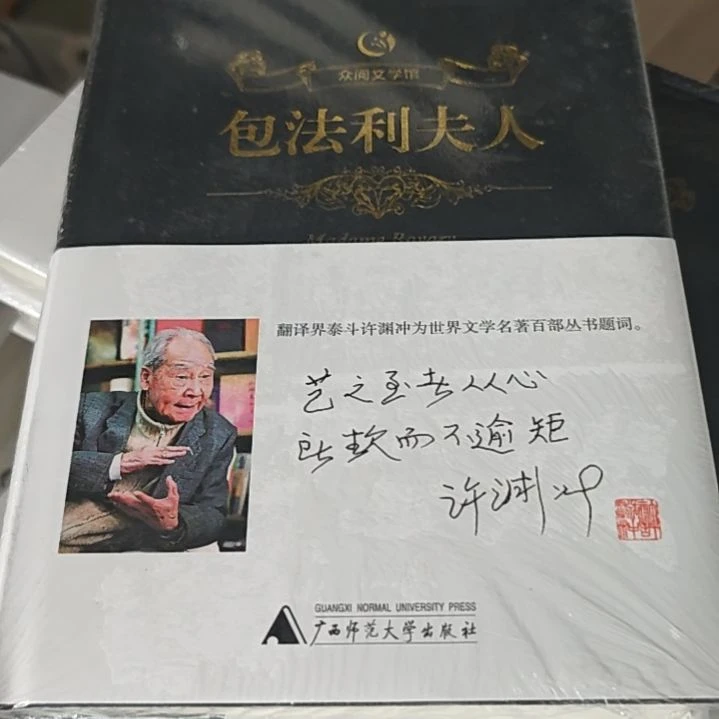 众阅文学馆
包法利夫人
Madame Bovary
翻译界泰斗许渊冲为世界文学名著百部丛书题词。
艺之至者从心
所欲而不逾矩
许渊冲
GUANGXI NORMAL UNIVERSITY PRESS
广西师范大学出版社